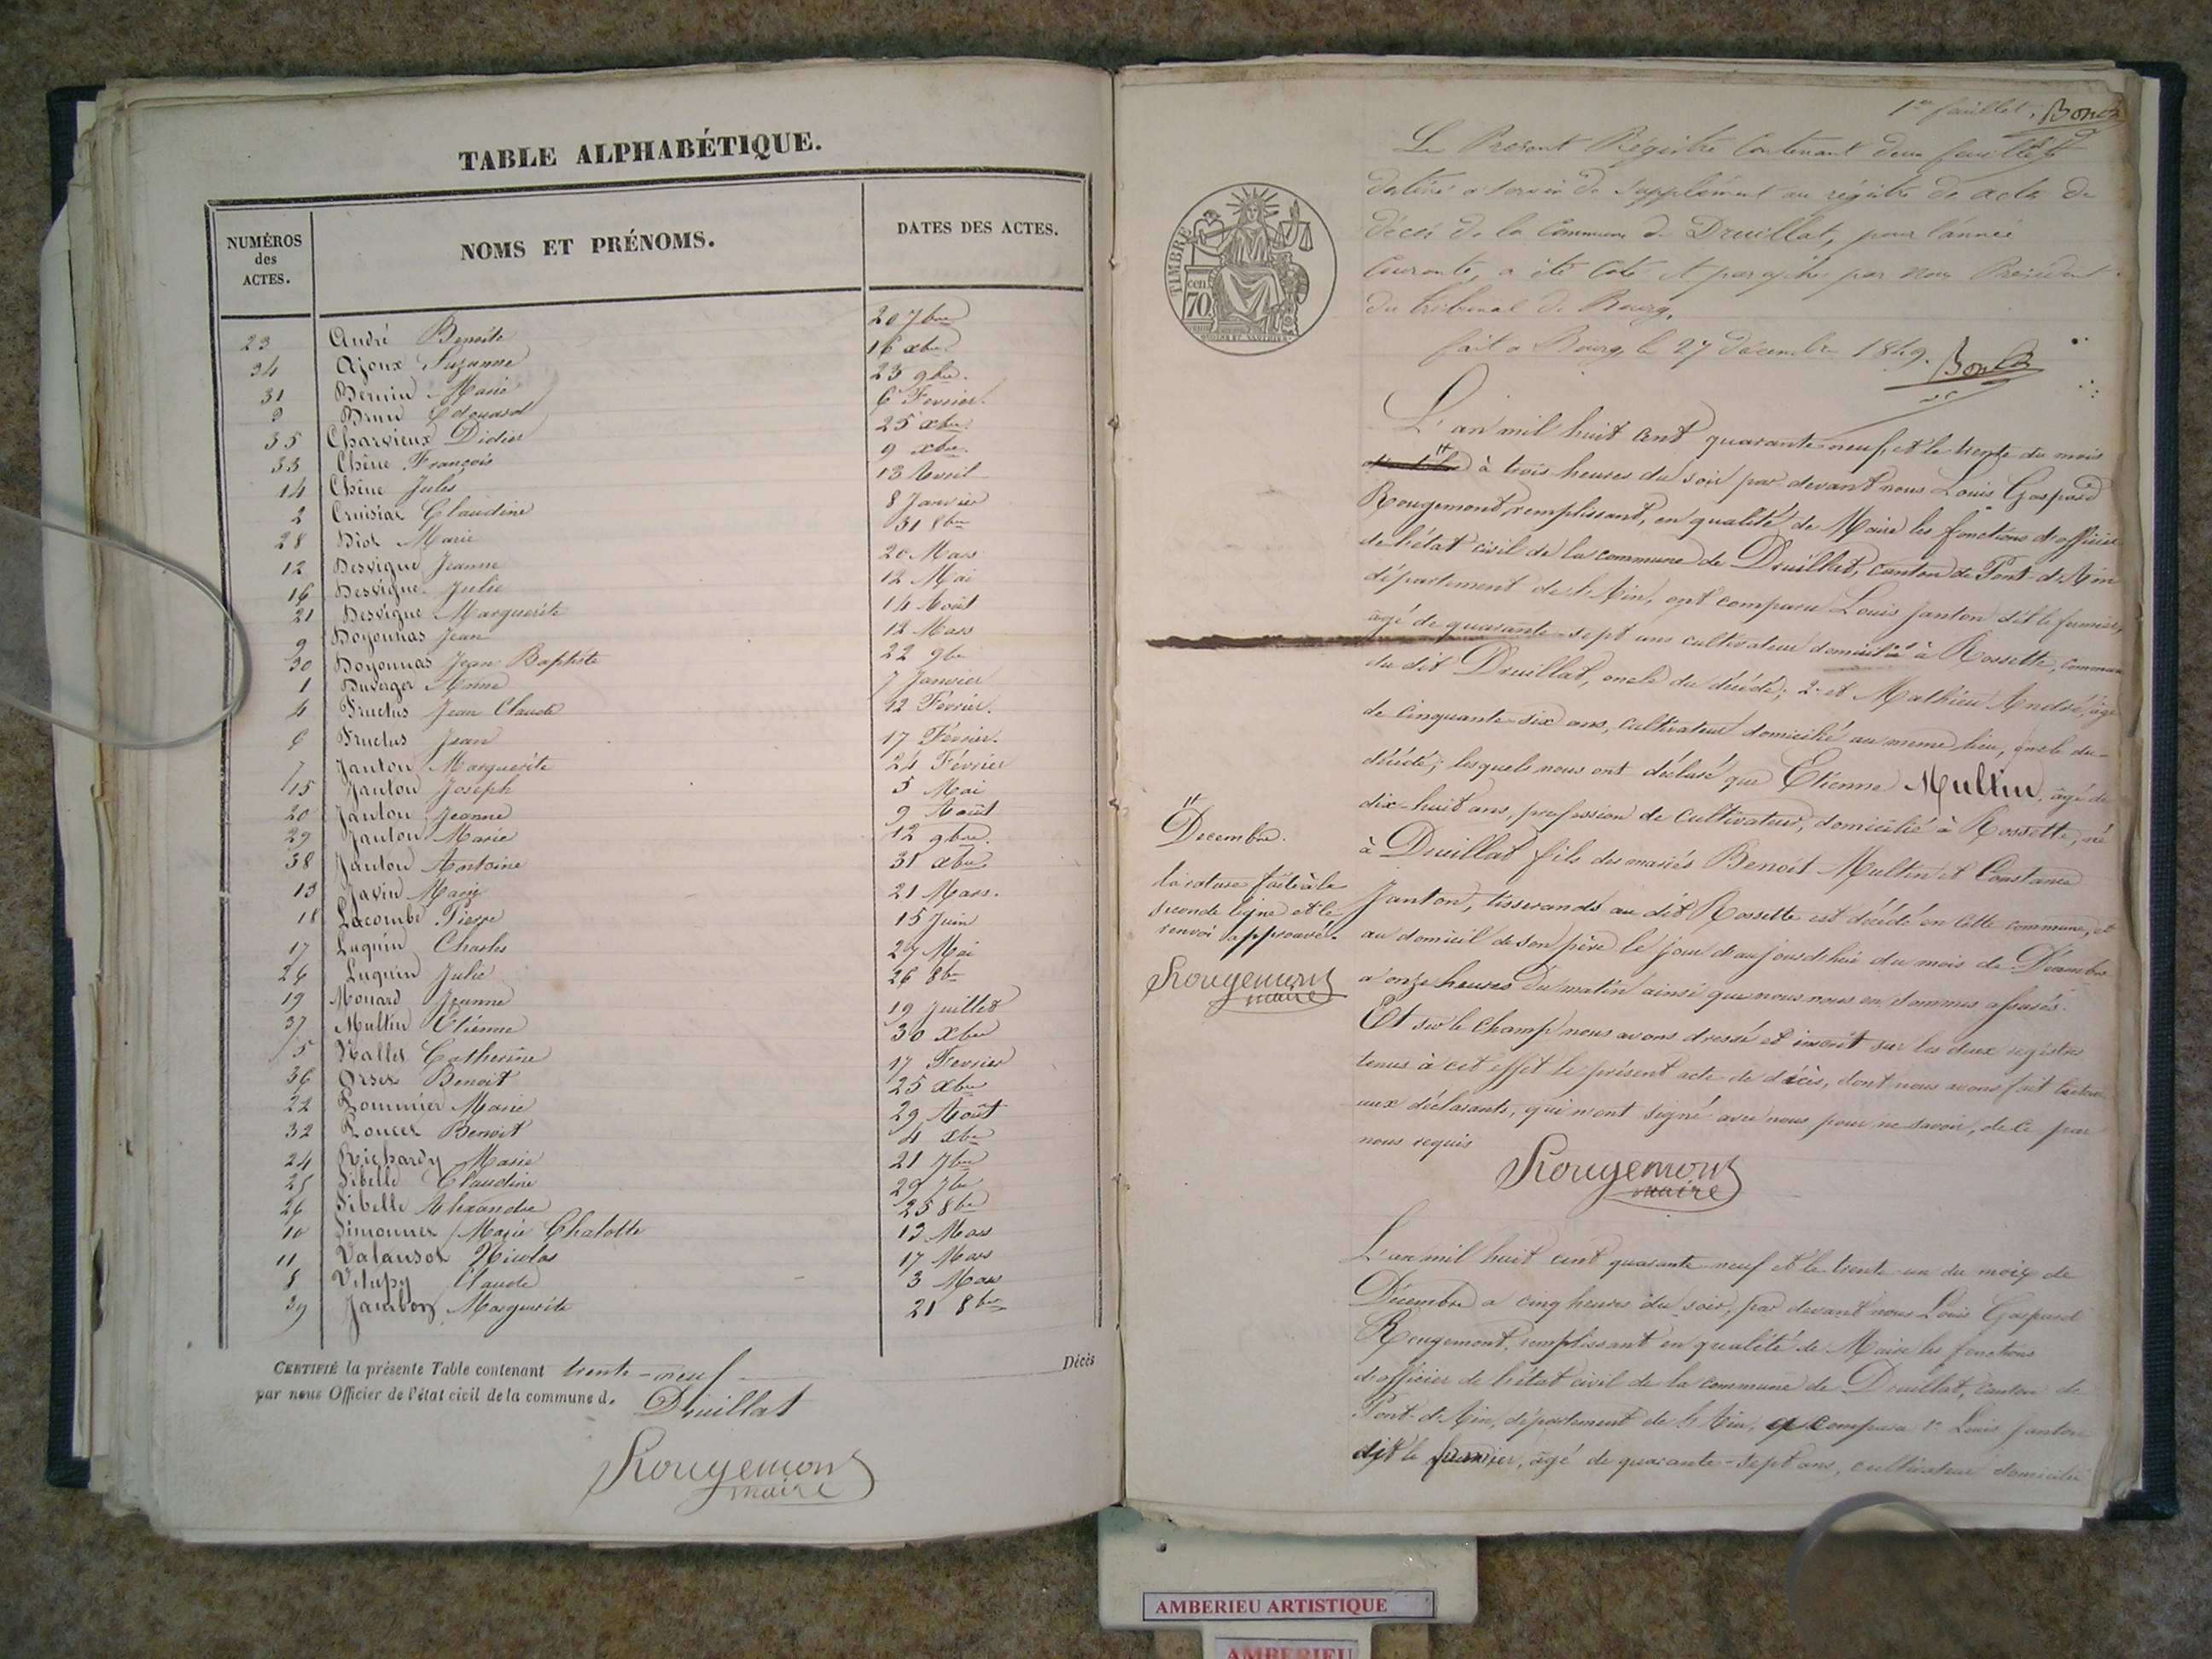 TABLE ALPHABÉTIQUE.
NUMÉROS des ACTES.
NOMS ET PRÉNOMS.
DATES DES ACTES.
23 André Benoîte 20 7bre
34 Ajoux Suzanne 16 xbre
31 Bernin Marie 23 9bre.
3 Brun Edouard 6 Fevrier.
35 Charvieux Didier 25 xbre
33 Chêne François 9 xbre.
14 Chêne Jules 13 Avril
2 Cruisiat Claudine 8 Janvier
28 Diot Marie 31 8bre
12 Desvigne Jeanne 20 Mars
16 Desvigne Julie 12 Mai
21 Desvigne Marguerite 14 Août
9 Doyonnas Jean 12 Mars
30 Doyonnas Jean Baptiste 22 9bre
1 Duverger Anne 7 Janvier
4 Fructus Jean Claude 12 Février.
6 Fructus Jean 17 Février.
7 Janton Marguerite 24 Février
15 Janton Joseph 5 Mai
20 Janton Jeanne 9 Août
29 Janton Marie 12 9bre.
38 Janton Antoine 31 xbre
13 Javin Marie 21 Mars.
18 Lacombe Pierre 15 Juin
17 Luquin Charles 27 Mai
26 Luquin Julie 26 8bre
19 Monard Jeanne 19 Juillet
37 Multin Étienne 30 xbre
5 Nallet Catherine 17 Fevrier
36 Orset Benoit 25 xbre
22 Pommier Marie 29 Août
32 Poncet Benoit 4 xbre
24 Richardy Marie 21 7bre
25 Sibelle Claudine 29 7bre
26 Sibelle Alexandre 25 8bre
10 Simonnet Marie Chalotte 13 Mars
11 Valansot Nicolas 17 Mars
8 Vitupy Claude 3 Mars
39 Jambon Marguerite 21 8bre
CERTIFIÉ la présente Table contenant trente-neuf Décès
par nous Officier de l'état civil de la commune d. Druillat
Rougemont
maire
1er feuillet. Bonet
Le Present Régistre Contenant deux feuillets
destiné a servir de Supplément au régistre des actes de
décès de la Commune de Druillat, pour l'année
Courante, a été Coté et paraphé par nous Président
du tribunal de Bourg,
fait a Bourg le 27 décembre 1849.
TIMBRE
70 cen
L'an mil huit cent quarante neuf, et le trente du mois
à trois heures du soir par devant nous Louis Gaspard
Rougemont, remplissant, en qualité de Maire les fonctions d'officier
de l'état civil de la commune de Druillat, canton de Pont-d'Ain
département de l'Ain, ont comparu Louis Janton dit le fermier,
âgé de quarante-sept ans cultivateur domicilié à Rossette, commune
du dit Druillat, oncle du décédé; 2° et Mathieu André, âgé
de cinquante-six ans, cultivateur domicilié au meme lieu, oncle du
décédé; lesquels nous ont déclaré que Étienne Multin, âgé de
dix-huit ans, profession de Cultivateur, domicilié à Rossette, né
à Druillat fils des mariés Benoit Multin et Constance
Janton, tisserands au dit Rossette est décédé en cette commune, et
au domicil de son père le jour d'aujourdhui du mois de Décembre
a onze heures du matin ainsi que nous nous en sommes assurés.
Et sur le champ nous avons dressé et inscrit sur les deux régistres
tenus à cet effet le présent acte de décès, dont nous avons fait lecture
aux déclarants, qui n'ont signé avec nous pour ne savoir, de ce par
nous requis
Rougemont
maire
Decembre.
la rature faite à la
seconde ligne et le
renvoi approuvé.
Rougemont
maire
L'an mil huit cent quarante neuf et le trente un du mois de
Décembre a cinq heures du soir, par devant nous Louis Gaspard
Rougemont, remplissant en qualité de Maire les fonctions
d'officier de l'état civil de la commune de Druillat, canton de
Pont-d'Ain, département de l'Ain, comparu 1° Louis Janton
dit le fermier, âgé de quarante-sept ans, cultivateur domicilié
AMBERIEU ARTISTIQUE
AMBERIEU